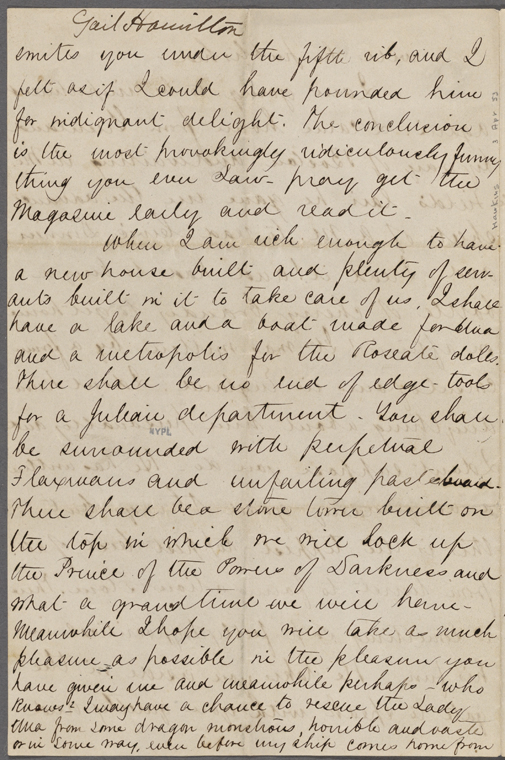 Gail Hamilton
smites you under the fifth rib, and I
felt as if I could have pounded him
for indignant delight. The conclusion
is the most provokingly ridiculously funny
thing you ever saw - pray get the
Magazine early and read it -
When I am rich enough to have
a new house built and plenty of serv-
ants built in it to take care of us, I shall
have a lake and a boat made for Una
and a metropolis for the Roseate dolls.
There shall be no end of edge-tools
for a Julian department - You shall
be surrounded with perpetual
Flaxmans and unfailing pasteboard.
There shall be a stone tower built on
the top in which we will lock up
the Prince of the Powers of Darkness and
what a grand time we will have -
Meanwhile I hope you will take as much
pleasure as possible in the pleasure you
have given me and meanwhile perhaps - who
knows? I may have a chance to rescue the Lady
Una from some dragon monstrous, horrible and vaste
or in some way, even before my ship comes home from
NYPL